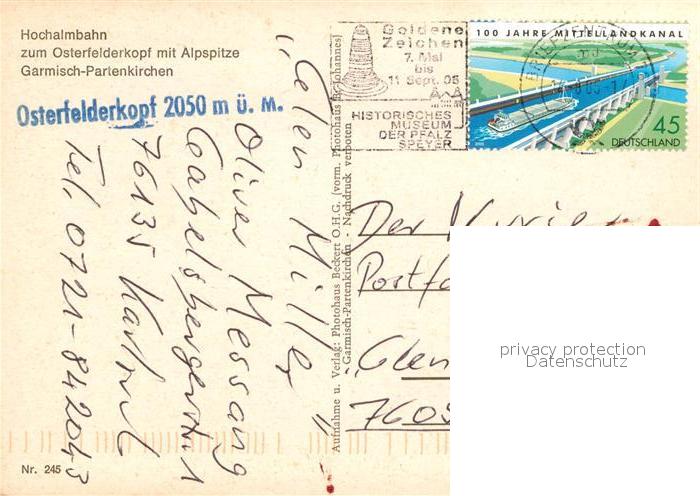 Hochalmbahn
zum Osterfelderkopf mit Alpspitze
Garmisch-Partenkirchen
Osterfelderkopf 2050 m ü. M.
Goldene
Zeichen
7. Mai
bis
11 Sept. 05
HISTORISCHES
MUSEUM
DER PFALZ
SPEYER
BRIEFZENTRUM
100 JAHRE MITTELLANDKANAL
45
DEUTSCHLAND
Aufnahme u. Verlag: Photohaus Beckert O.H.G. (vorm. Photohaus St. Johannes)
Garmisch-Partenkirchen - Nachdruck verboten
Miller"
Oliver Messang
76135
Tel. 0721-842043
Der Kurier
Postfa
Glen
760
privacy protection
Datenschutz
Nr. 245